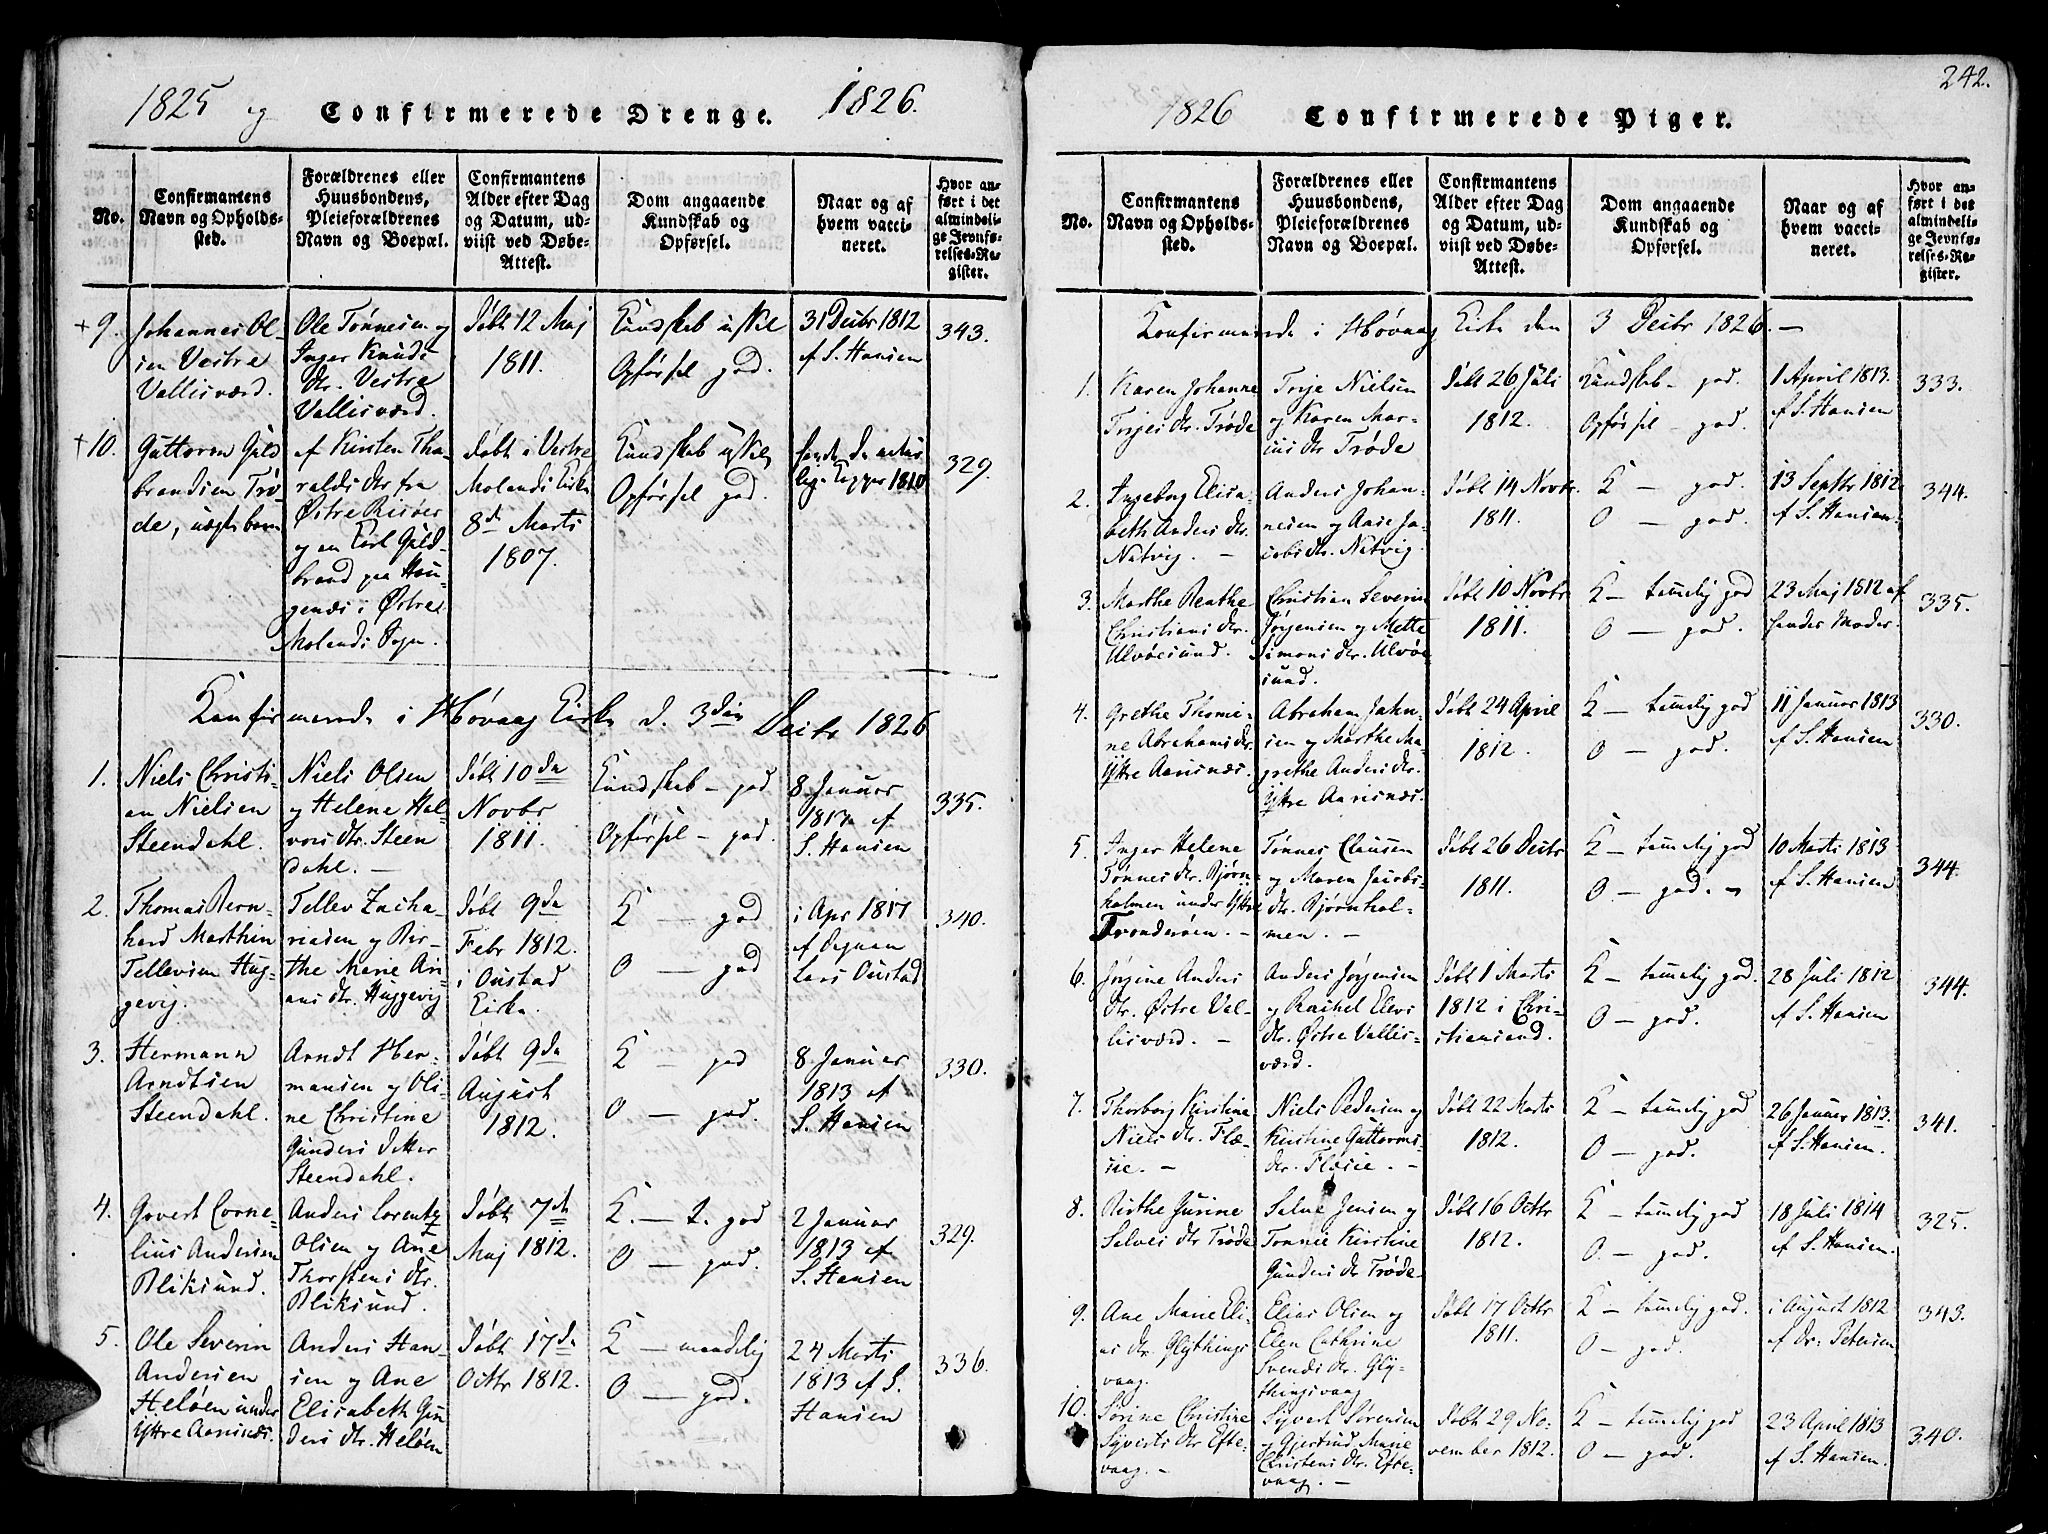 1825 og Confirmerede Drenge. 1826.
No.
Confirmantens
Navn og Opholds-
sted.
Forældrenes eller
Huusbondens,
Pleieforældrenes
Navn og Boepæl.
Confirmantens
Alder efter Dag
og Datum, ud-
viist ved Døbe-
Attest.
Dom angaaende
Kundskab og
Opførsel.
Naar og af
hvem vacci-
neret.
Hvor an-
ført i det
almindeli-
ge Jevnfø-
relses-Re-
gister.
+9.
Johannes Ol-
sen Vestre
Vallisværd.
Ole Tønnesen og
Inger Knuds
dtr. Vestre
Vallisværd.
Døbt 12 Maj
1811.
Kundskab
Opførsel god.
31 Decbr 1812
af S. Hansen
343.
+10.
Guttorm Guld
brandsen Trø-
de, uægte barn
af Kirsten Tha-
ralds dtr fra
Østre Risøer
og en Karl Guld-
brand paa Hou-
genæs i Østre
Molands Sogn.
Døbt i Vestre
Molands Kirke
8de Marts
1807.
Kundskab
Opførsel god.
havde de natur
lige Kopper 1810
329.
Konfirmerede i Høvaag Kirke d. 3die Decbr 1826
1.
Niels Christi-
an Nielsen
Steendahl.
Niels Olsen
og Helene Hal-
vors dtr. Steen
dahl. —
Døbt 10de
Novbr
1811.
Kundskab - god
Opførsel - god.
8 Januar
1813 af
S. Hansen
335.
2.
Thomas Bern-
hard Marthin
Tellevsen Hug-
gevig.
Tellev Zacha-
riasen og Bir-
the Marie Ari-
ans dtr. Huggevig
Døbt 9de
Febr 1812.
i Oustad
Kirke.
K — god
O — god
i Apr 1817
af Degnen
Lars Oustad
340.
3.
Hermann
Arndtsen
Steendahl.
Arndt Her-
mansen og Oli-
ne Christine
Gunders Datter
Steendahl.
Døbt 9de
August
1812.
K — god
O — god.
8 Januar
1813 af
S. Hansen
330.
4.
Govert Corne-
lius Andersen
Bliksund.
Anders Lorentz
Olsen og Ane
Thorstens dtr.
Bliksund.
Døbt 7de
Maj 1812.
K. — t. god
O — god.
2 Januar
1813 af
S. Hansen
329.
5.
Ole Severin
Andersen
Heløen under
Yttre Aarisnæs.
Anders Han-
sen og Ane
Elisabeth Gun
ders dtr. Heløen
Døbt 17de
Octbr 1812.
K — maadelig
O — god.
24 Marts
1813 af S.
Hansen
336.
242.
1826 Confirmerede Piger.
No.
Confirmantens
Navn og Opholds-
sted.
Forældrenes eller
Huusbondens,
Pleieforældrenes
Navn og Boepæl.
Confirmantens
Alder efter Dag
og Datum, ud-
viist ved Døbe-
Attest.
Dom angaaende
Kundskab og
Opførsel.
Naar og af
hvem vacci-
neret.
Hvor an-
ført i det
almindeli-
ge Jevnfø-
relses-Re-
gister.
Konfirmerede i Høvaag Kirke den 3 Decbr 1826. —
1.
Karen Johanne
Terjes dtr. Trøde
Terje Nielsen
og Karen Mar-
cus dtr Trøde
Døbt 26 Juli
1812.
Kundskab - god.
Opførsel - god.
1 April 1813.
af S. Hansen
333.
2.
Ingeborg Elisa-
beth Anders dtr.
Natvig. —
Anders Johan-
nesen og Aase Ja-
cobs dtr. Natvig.
Døbt 14 Novbr.
1811.
K — god.
O — god.
13 Septbr 1812
af S. Hansen.
344.
3.
Marthe Beathe
Christians dtr.
Ulvøesund.
Christian Severin
Jørgensen og Mette
Simons dtr. Ulvøe
sund.
Døbt 10 Novbr
1811.
K — temmelig god
O — god.
23 Maj 1812 af
hendes Moder.
335.
4.
Grethe Thomi-
ne Abrahams dtr.
Yttre Aarisnæs.
Abraham Jahn-
sen og Marthe Ma-
grethe Anders dtr.
Yttre Aarisnæs.
Døbt 24 April
1812.
K — temmelig god
O — god.
11 Januar 1813
af S. Hansen
330.
5.
Inger Helene
Tønnes dtr. Bjørn
holmen under Yttre
Tronderøen. -
Tønnes Clausen
og Maren Jacobs-
dtr. Bjørnhol-
men. —
Døbt 26 Decbr
1811.
K — temmelig god
O — god. -
10 Marts 1813
af S. Hansen
344.
6.
Jørgine Anders
dtr. Østre Val-
lisværd. —
Anders Jørgensen
og Rachel Elevs
dtr. Østre Vallis-
værd.
Døbt 1 Marts
1812 i Chri-
stiansand.
K — temmelig god.
O — god.
28 Juli 1812
af S. Hansen
344.
7.
Thorborg Kirstine
Niels dtr. Flæ-
sie. —
Niels Pedersen og
Kirstine Guttorms
dtr. Flæsie. —
Døbt 22 Marts
1812.
K — temmelig god
O — god.
26 Januar 1813.
af S. Hansen.
341.
8.
Birthe Gurine
Salves dtr Trøde
Salve Jensen og
Tonnie Kirstine
Gunders dtr Trøde
Døbt 16 Octbr
1812.
K — temmelig god
O. — god.
18 Juli 1814
af S. Hansen.
325.
9.
Ane Marie Eli-
as dtr. Glythings
vaag.
Elias Olsen og
Elen Cathrine
Svends dtr. Gly-
thingsvaag
Døbt 17 Octbr
1811.
K — temmelig god.
O — god.
i August 1812
af Dr. Petersen
343.
10.
Sørine Christine
Syverts dtr Efte-
vaag. —
Syvert Sørensen
og Gjertrud Marie
Christens dtr. Efte-
vaag. —
Døbt 29 No-
vember 1812.
K — temmelig god
O — god.
23 April 1813
af S. Hansen.
340.